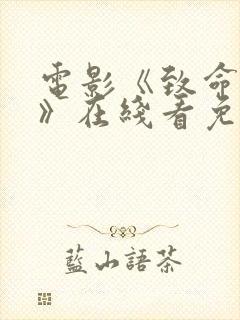 電影《致命
》在綫看免
藍山語茶